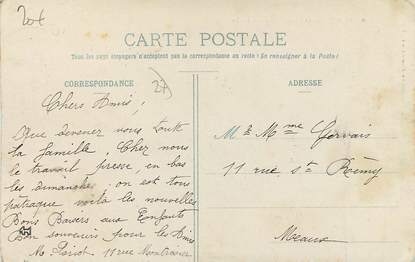 20f
CARTE POSTALE
Tous les pays étrangers n'acceptent pas la correspondance au recto (Se renseigner à la Poste)
CORRESPONDANCE
ADRESSE
27
Chers Amis,
Que devenez vous toute
la famille. Chez nous
le travail presse, en bas
les dimanches, on est tous
patraque voilà les nouvelles
Bons Baisers aux Enfants
Bon souvenirs pour les Amis
M 11 rue
Mr & Mme Gervais
11 rue St Rémy
Meaux